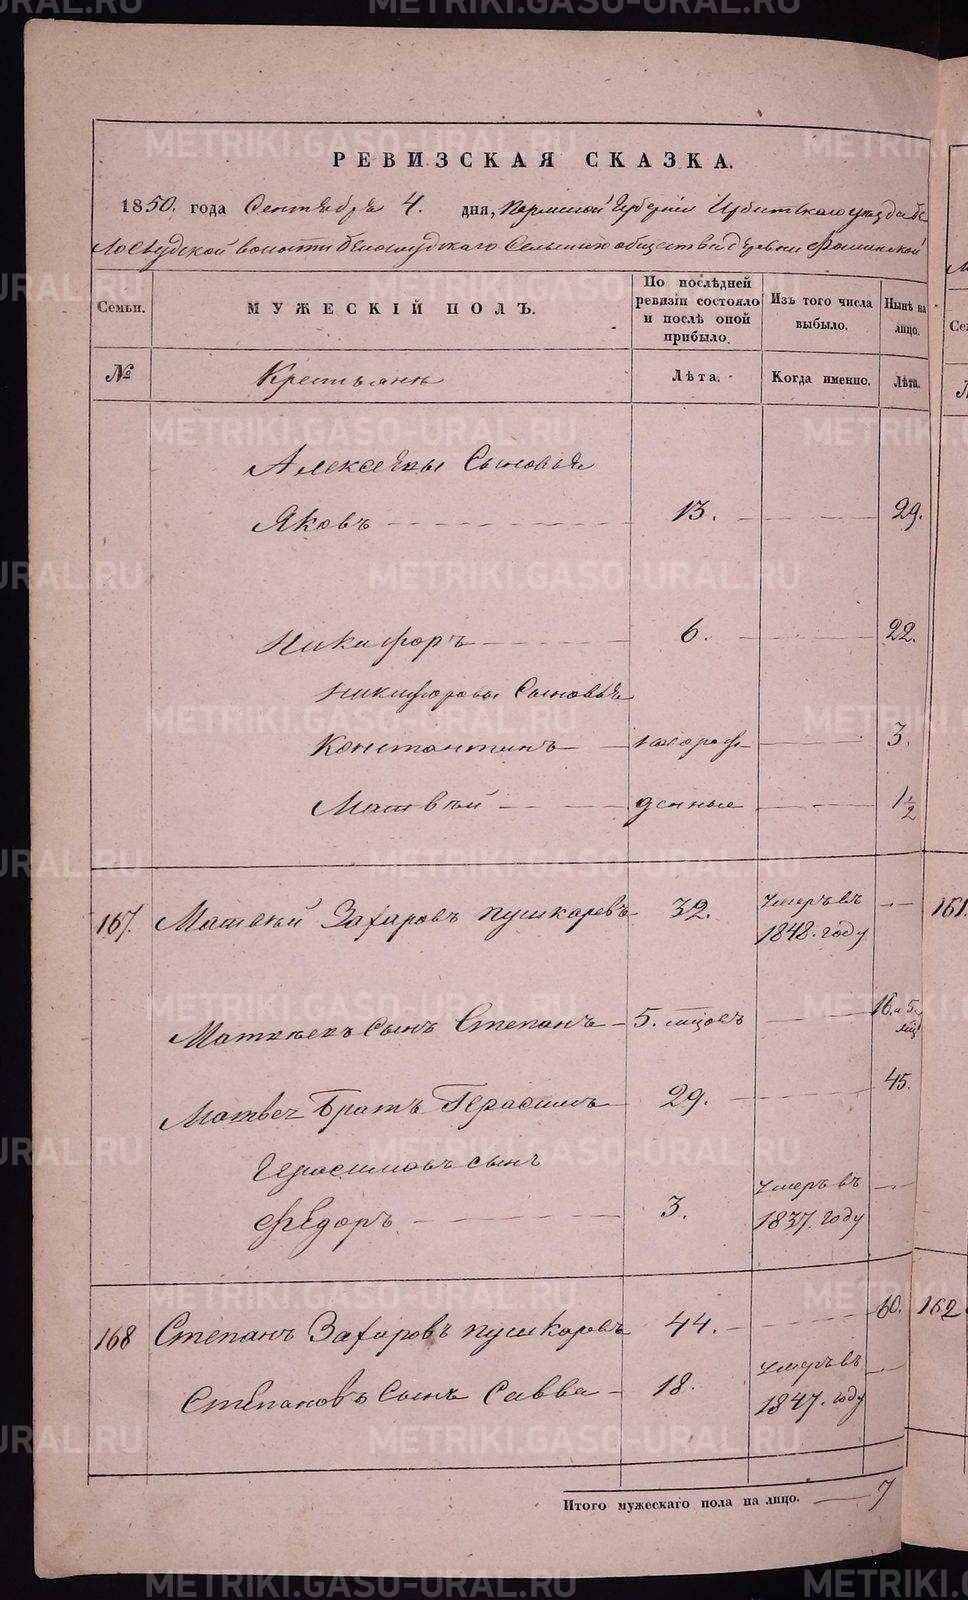 РЕВИЗСКАЯ СКАЗКА.
1850. года Сентября 4. дня, Пермской Губернии Ирбитскаго уезда бе
лослудской волости белослудскаго Сельскаго общества деревни Фоминской
Семьи. МУЖЕСКІЙ ПОЛЪ. По послѣдней ревизіи состояло и послѣ оной прибыло. Изъ того числа выбыло. Нынѣ на лицо.
№ Крестьяне Лѣта. Когда именно. Лѣта.
Алексеевы Сыновья
Яковъ 13. 29.
Никифоръ 6. 22.
Никифоровы Сыновья
Константинъ новорож 3.
Матвѣй денные 1 1/2
167. Матвѣй Захаровъ Пушкаревъ 32. умеръ въ 1848. году
161.
Матвѣевъ сынъ Степанъ 5. мцовъ 16. и 5. мцъ
Матвея Братъ Герасимъ 29. 45.
Герасимовъ сынъ
Федоръ 3. умеръ въ 1837. году
168 Степанъ Захаровъ Пушкаревъ 44. 60.
162
Степановъ Сынъ Савва 18. умеръ въ 1847. году
Итого мужескаго пола на лицо. 7
METRIKI.GASO-URAL.RU